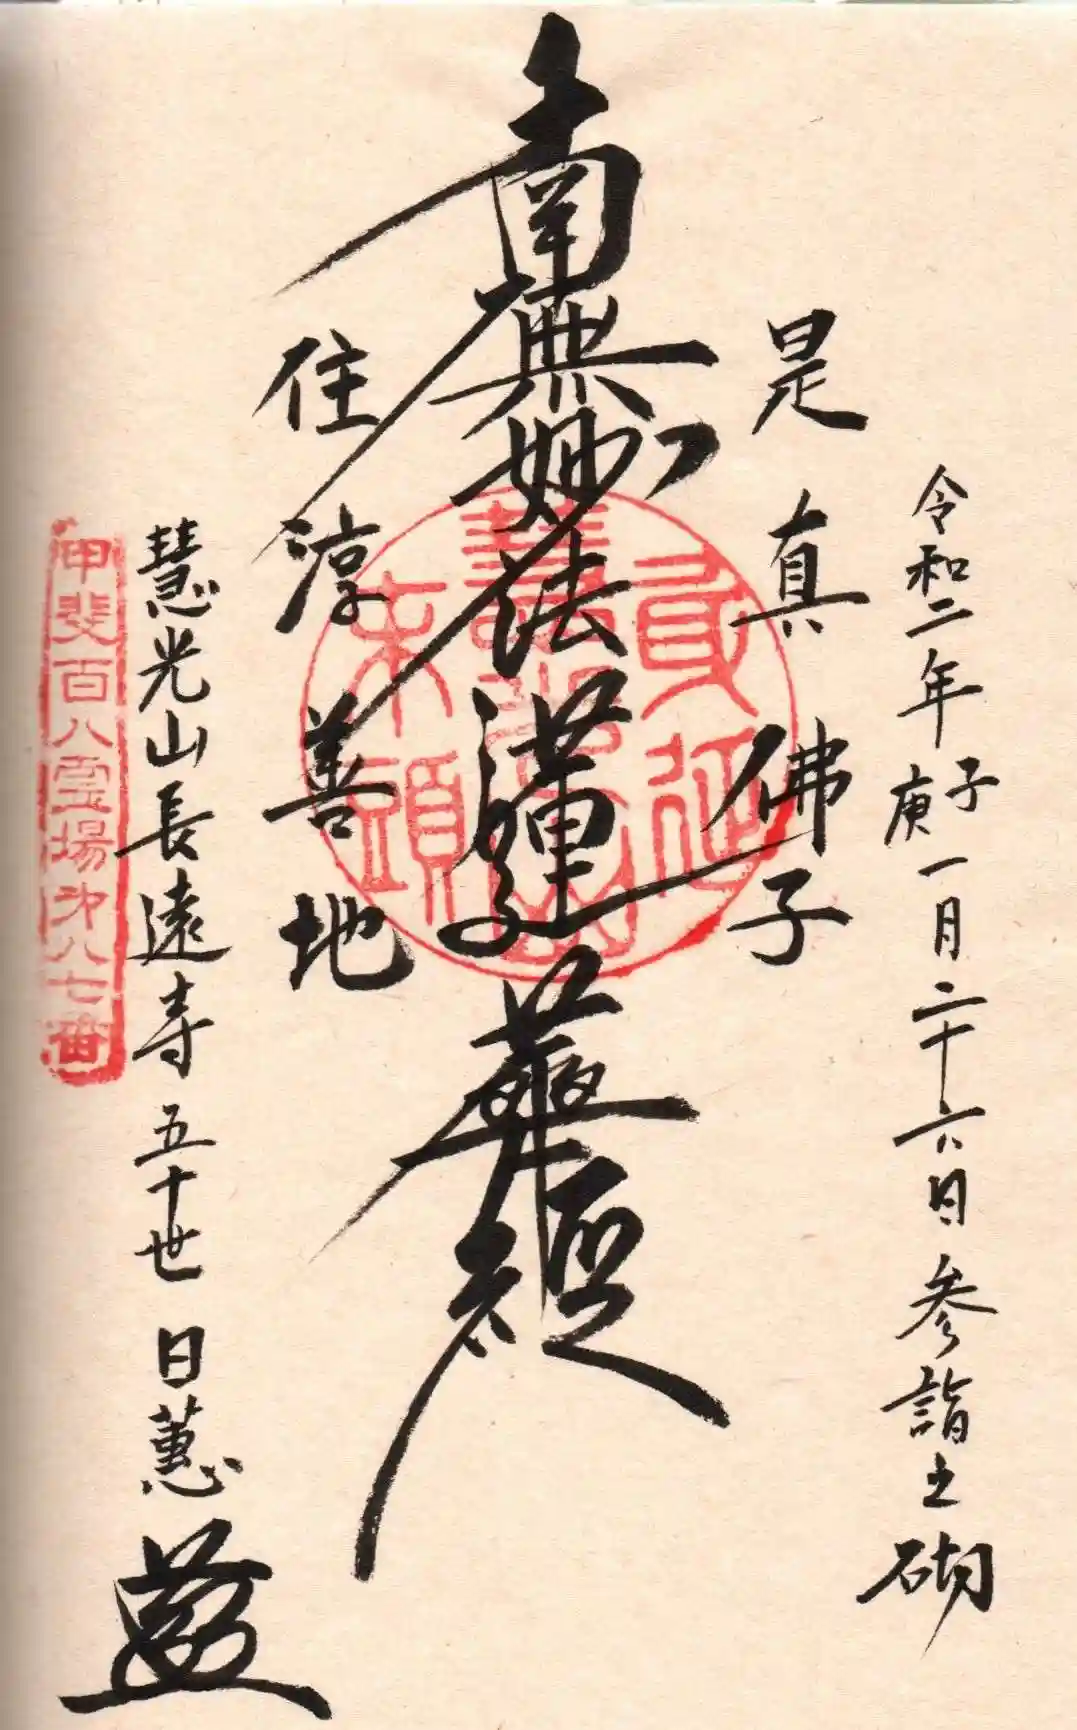 令和二年庚子一月二十六日参詣之砌
是真佛子
南無妙法蓮華経
住淳善地
身延
末頭
慧光山長遠寺五十世日蕙
甲斐百八霊場第八七番